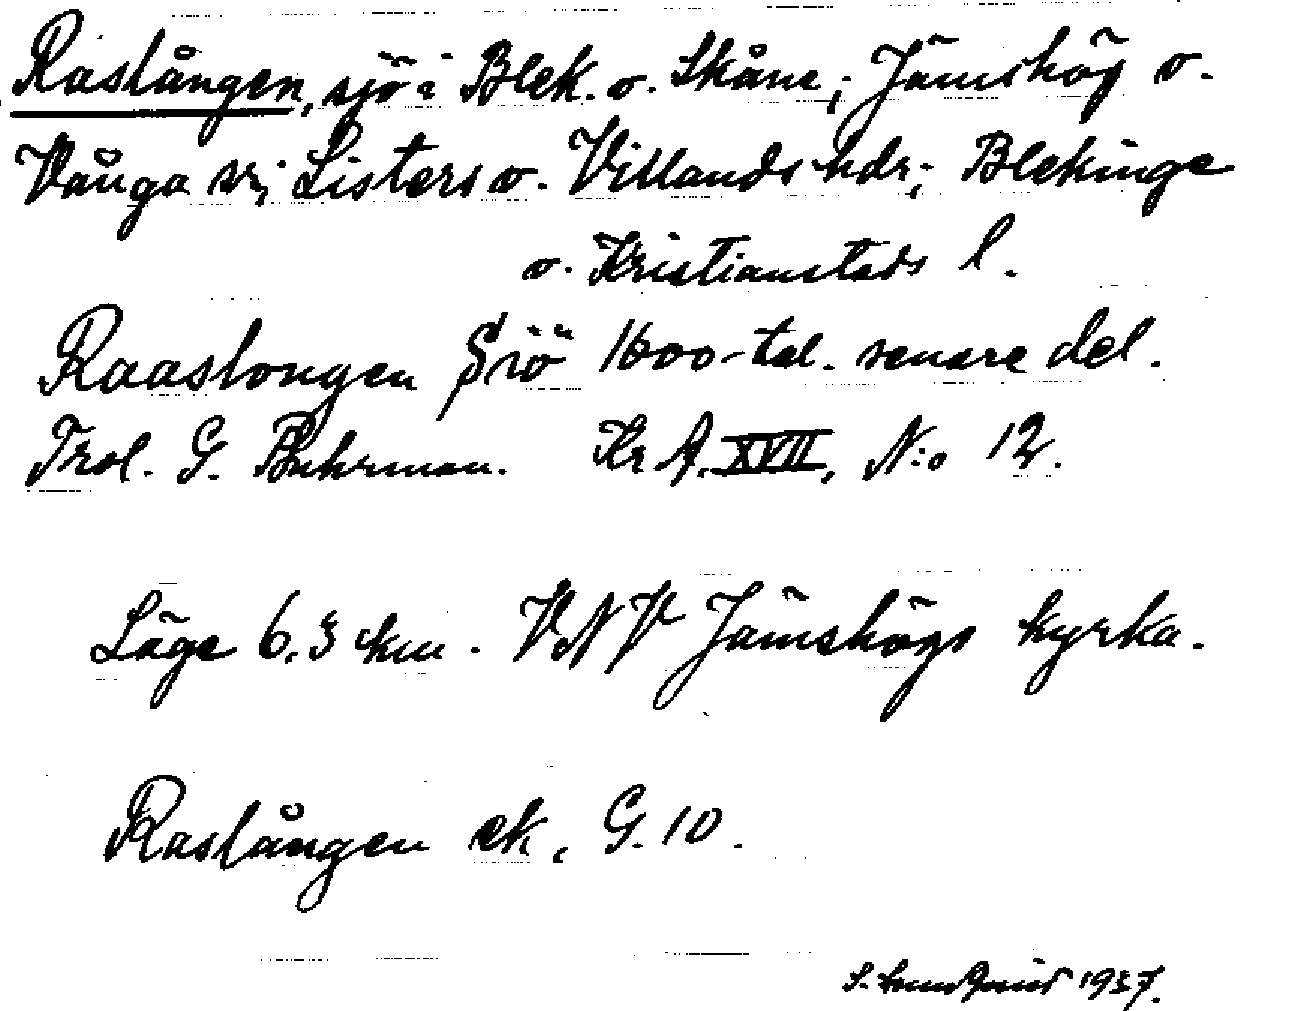 Raslången, sjö i Blek. o. Skåne; Jämshög o.
Vånga sn; Listers o. Villands hdr; Blekinge
o. Kristianstads l.
Raaslongen Siö 1600-tal. senare del.
Trol. G. Buhrman. Kr A. XVII, N:o 12.
Läge 6,3 km. VNV Jämshögs kyrka.
Raslången ek. G. 10.
S. Lundquist 1937.